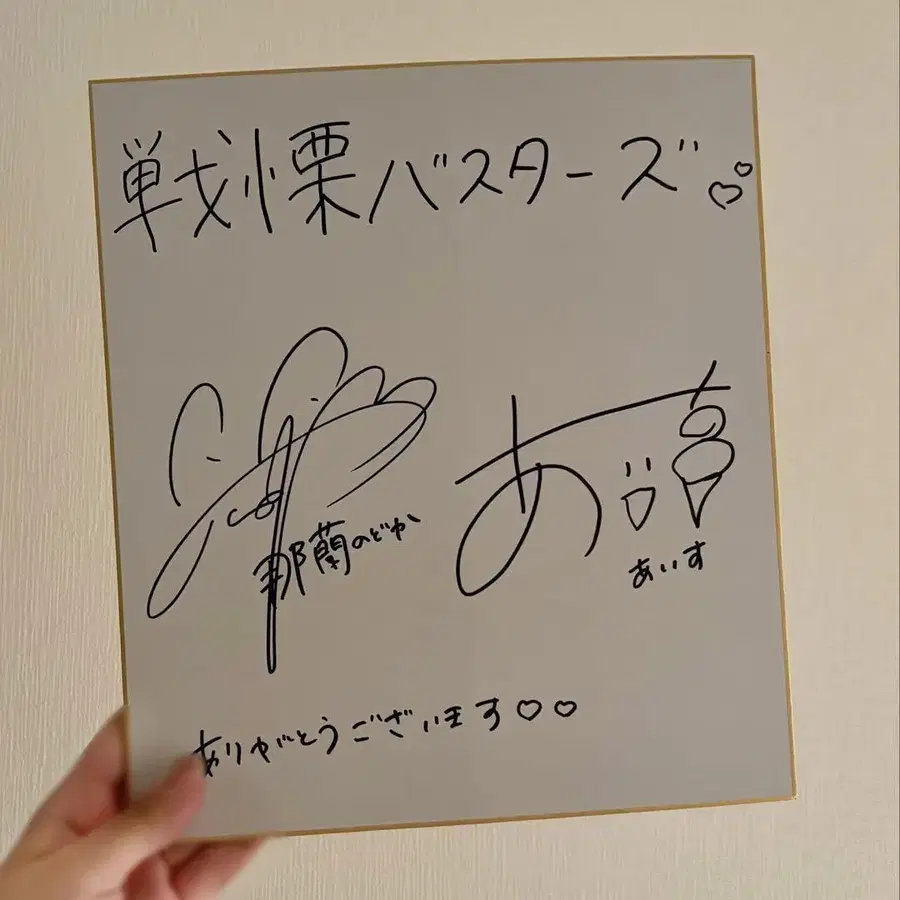 戦慄バスターズ♡♡
那蘭のどか
あいす
ありがとうございます♡♡